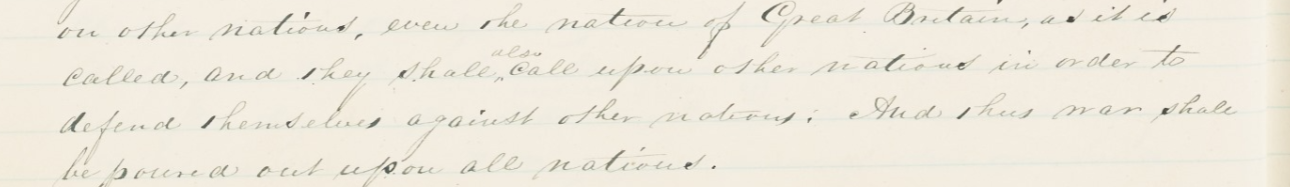 on other nations, even the nation of Great Britain, as it is
called, and they shall also call upon other nations in order to
defend themselves against other nations; And thus war shall
be poured out upon all nations.